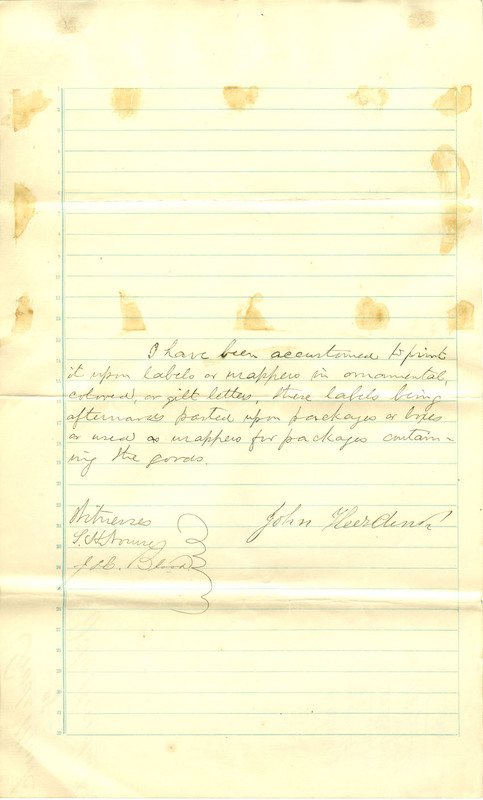 I have been accustomed to print
it upon labels or wrappers in ornamental,
colored, or gilt letters, these labels being
afterwards pasted upon packages or boxes
or used as wrappers for packages contain-
ing the goods.
Witnesses
John